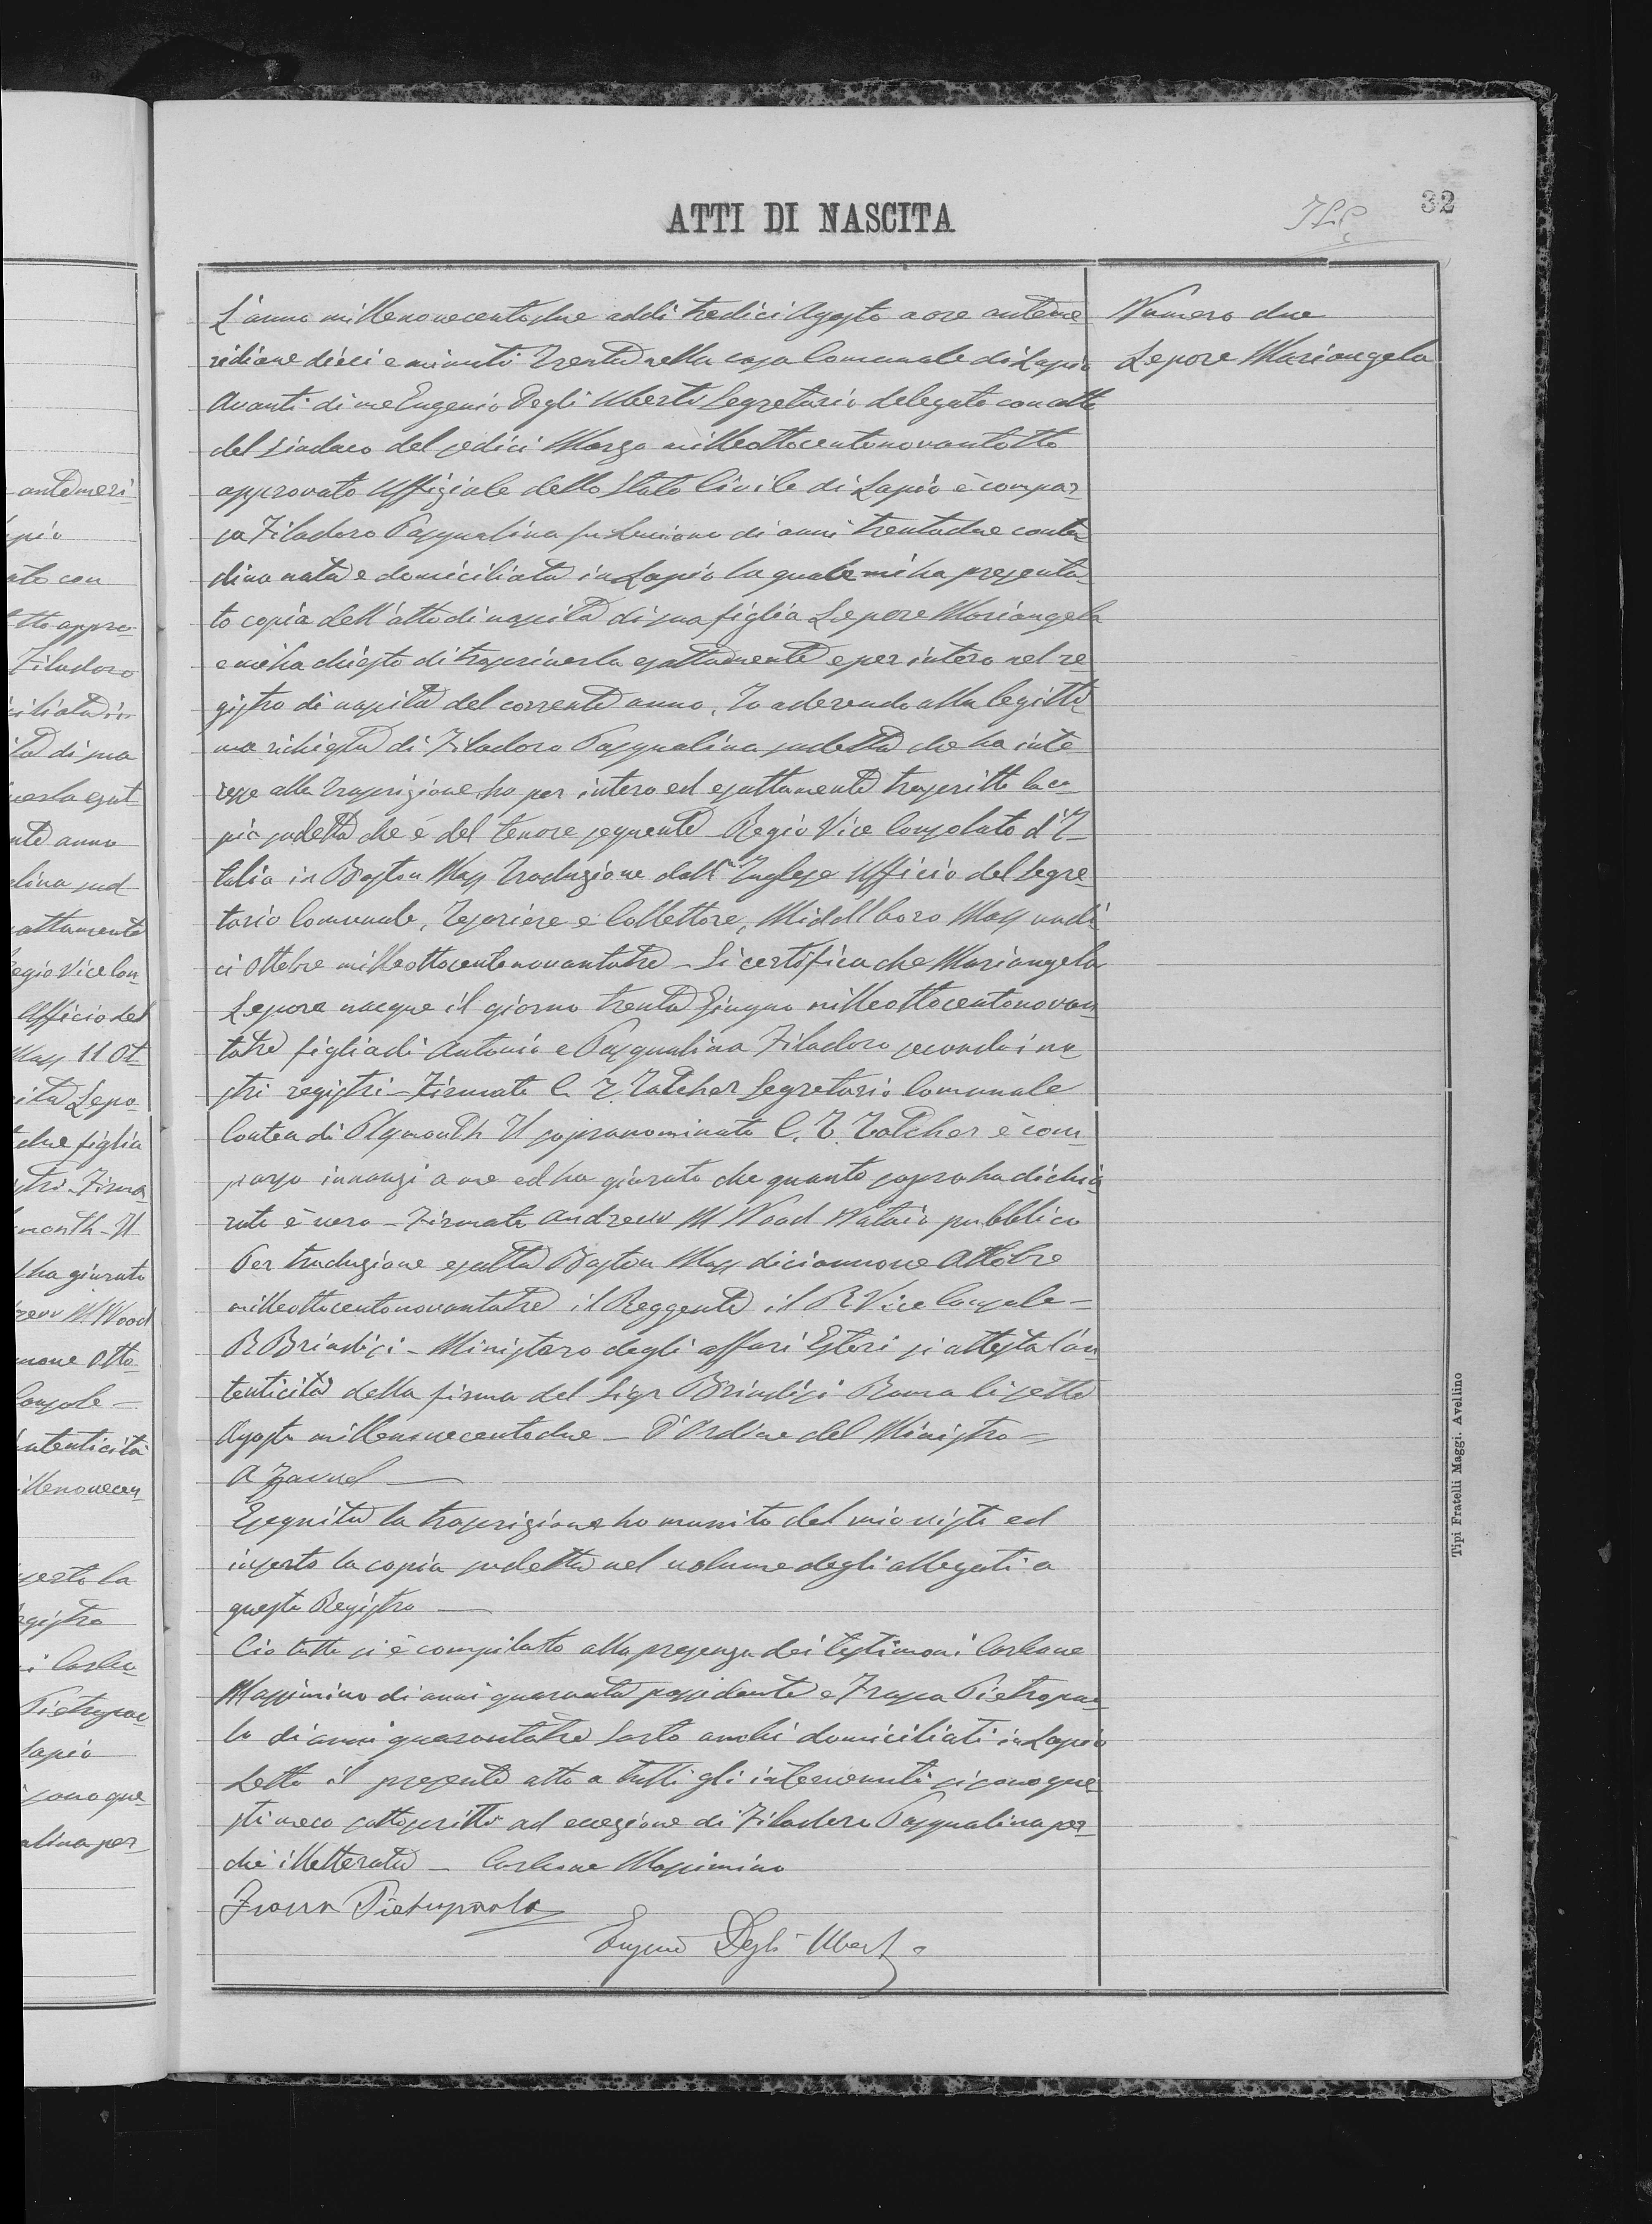 32
ATTI DI NASCITA
Numero due
Lepore Mariangela
L'anno millenovecentodue addì tredici Agosto a ore anteme
ridiane dieci e minuti trenta nella casa Comunale di Lapio
Avanti di me Eugenio Degli Uberti Segretario delegato con atto
del Sindaco del sedici Marzo milleottocentonovantotto
approvato Uffiziale dello Stato Civile di Lapio è compar-
sa Filadoro Pasqualina fu Luciano di anni trentadue conta-
dina nata e domiciliata in Lapio la quale mi ha presenta-
to copia dell'atto di nascita di sua figlia Lepore Mariangela
e mi ha chiesto di trascriverla esattamente e per intero nel re-
gistro di nascita del corrente anno. Io aderendo alla legitti-
ma richiesta di Filadoro Pasqualina sudetta che ha inte-
resse alla trascrizione ho per intero ed esattamente trascritto la co-
pia sudetta che è del tenore seguente Regio Vice Consolato d'I-
talia in Boston Mass Traduzione dall'Inglese Ufficio del Segre-
tario Comunale, Tesoriere e Collettore, Middlboro Mass undi-
ci Ottobre milleottocentonovantatre - Si certifica che Mariangela
Lepore nacque il giorno trenta Giugno milleottocentonovan-
tatre figlia di Antonio e Pasqualina Filadoro secondo i no-
stri registri - Firmato C. T. Tatcher Segretario Comunale
Contea di Plymouth Il sopranominato C. T. Tatcher è com-
parso innanzi a me ed ha giurato che quanto sopra ha dichia-
rato è vero - Firmato Andrew M Wood Notaio pubblico
Per traduzione esatta Boston Mass diciannove Ottobre
milleottocentonovantatre il Reggente il R Vice Console =
R Brindisi - Ministero degli affari Esteri si attesta l'au-
tenticità della firma del Sigr Brindisi Roma li sette
Agosto millenovecentodue - D'Ordine del Ministro =
Eseguita la trascrizione ho munito del mio visto ed
inserto la copia sudetta nel volume degli allegati a
questo Registro
Ciò tutto si è compilato alla presenza dei testimoni Carbone
Massimino di anni quaranta possidente e Frassa Pietropao-
lo di anni quarantatre sarto ambi domiciliati in Lapio
Letto il presente atto a tutti gli intervenuti si sono que-
sti meco sottoscritti ad eccezione di Filadoro Pasqualina per-
chè illetterata - Carbone Massimino
Pietropaolo
Eugenio Degli Uberti
Tipi Fratelli Maggi. Avellino